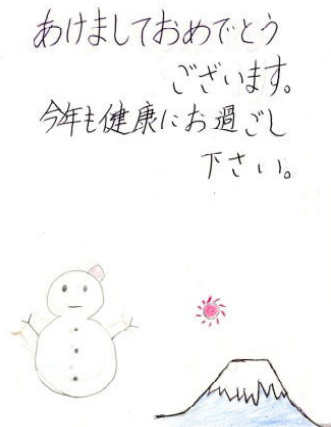 あけましておめでとう
ございます。
今年も健康にお過ごし
下さい。